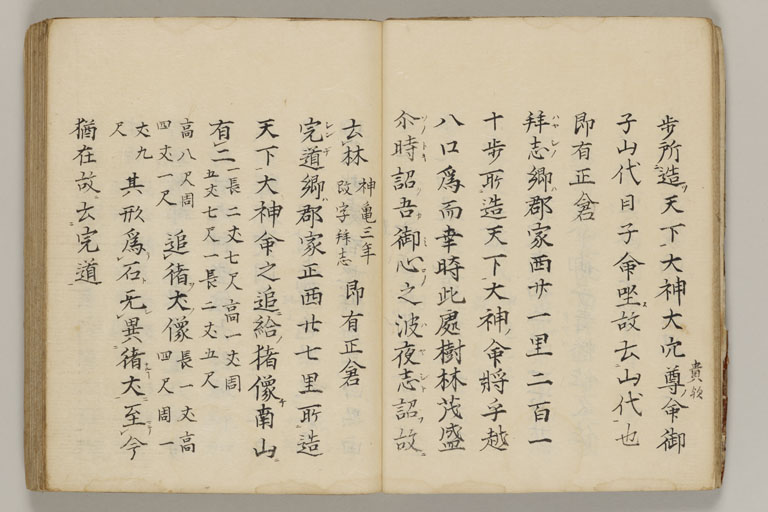 歩所造天下大神大穴尊命御
子山代日子命坐故去山代也
即有正倉
拝志郷郡家西廿一里二百一
十歩所造天下大神命將乎越
八口為而幸時此處樹林茂盛
尒時詔吾御心之波夜志詔故
去林神亀三年改字拜志即有正倉
完道郷郡家正西廿七里所造
天下大神命之追給猪像南山
有二一長二丈七尺高一丈周
五丈七尺一長二丈五尺
高八尺周
四丈一尺追猪犬像長一丈高
四尺周一
丈九
尺其形為石无異猪犬至今
猶在故去完道